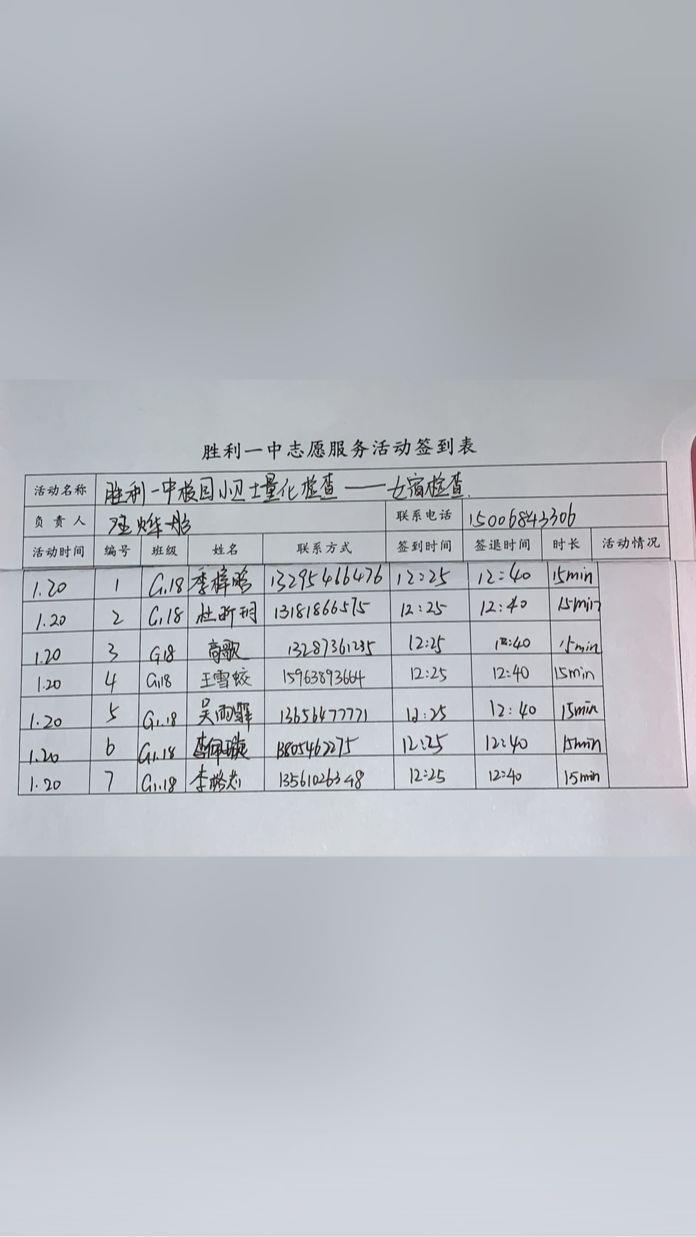 胜利一中志愿服务活动签到表
活动名称 胜利一中校园小卫士量化检查——女宿检查
负责人 联系电话 15006843306
活动时间 编号 班级 姓名 联系方式 签到时间 签退时间 时长 活动情况
1.20 1 G.18 李梓鸣 13295466476 12:25 12:40 15min
1.20 2 G.18 杜昕玥 13181866575 12:25 12:40 15min
1.20 3 G18 高歌 13287361235 12:25 12:40 15min
1.20 4 G18 王雪姣 15963893664 12:25 12:40 15min
1.20 5 G1.18 吴雨霏 13656477771 12:25 12:40 15min
1.20 6 G1.18 13805462275 12:25 12:40 15min
1.20 7 G1.18 13561026348 12:25 12:40 15min